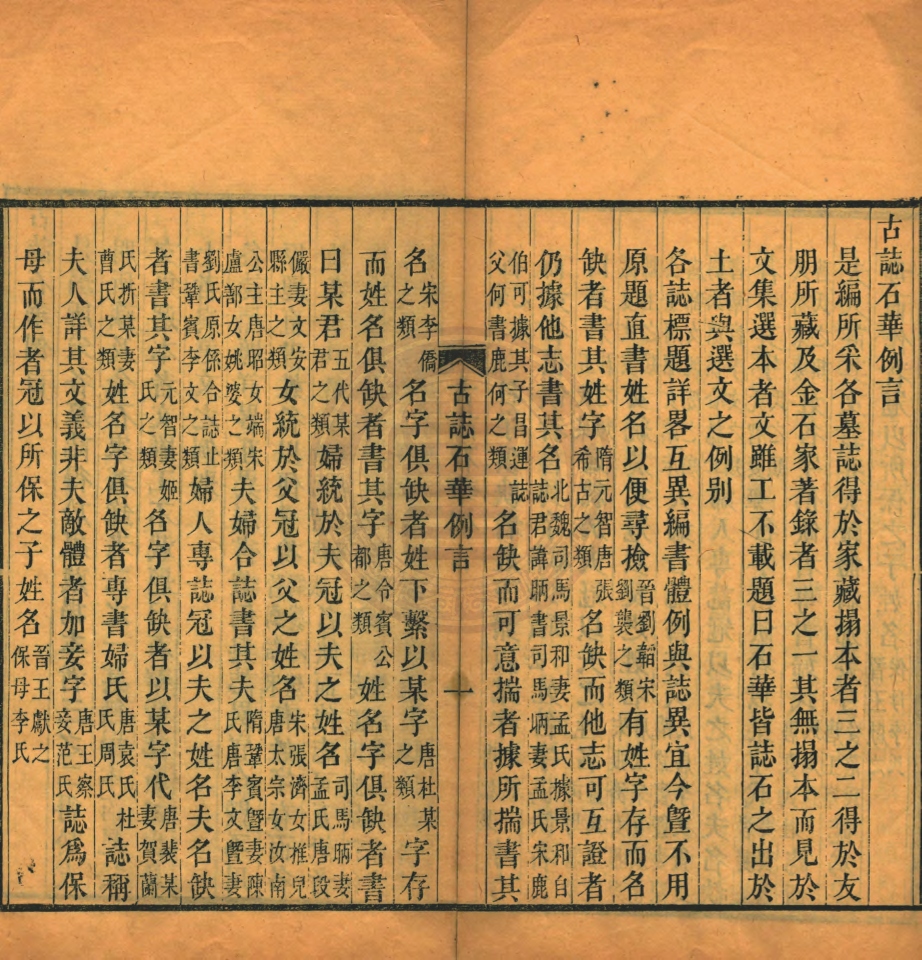 古誌石華例言
是編所采各墓誌得於家藏搨本者三之二得於友
朋所藏及金石家著錄者三之一其無搨本而見於
文集選本者文雖工不載題曰石華皆誌石之出於
土者與選文之例别
各誌標題詳畧互異編書體例與誌異宜今曁不用
原題直書姓名以便尋檢晉劉韜宋劉襲之類有姓字存而名
缺者書其姓字隋元智唐張希古之類名缺而他志可互證者
仍據他志書其名北魏司馬景和妻孟氏據景和自誌君諱昞書司馬昞妻孟氏宋鹿
伯可據其子昌運誌父何書鹿何之類名缺而可意揣者據所揣書其
古誌石華例言 一
名宋李僑之類名字俱缺者姓下繫以某字唐杜某之類字存
而姓名俱缺者書其字唐令賓公都之類姓名字俱缺者書
曰某君五代某君之類婦統於夫冠以夫之姓名司馬昞妻孟氏唐段
儼妻文安縣主之類女統於父冠以父之姓名宋張濟女推兒唐太宗女汝南
公主唐昭女端宋盧鄯女姚婆之類夫婦合誌書其夫隋鞏賓曁妻陳氏唐李文曁妻
劉氏原係合誌止書鞏賓李文之類婦人專誌冠以夫之姓名夫名缺
者書其字元智妻姬氏之類名字俱缺者以某字代唐裴某妻賀蘭
氏折某妻曹氏之類姓名字俱缺者專書婦氏唐袁氏杜氏周氏誌稱
夫人詳其文義非夫敵體者加妾字唐王察妾范氏誌為保
母而作者冠以所保之子姓名晉王獻之保母李氏